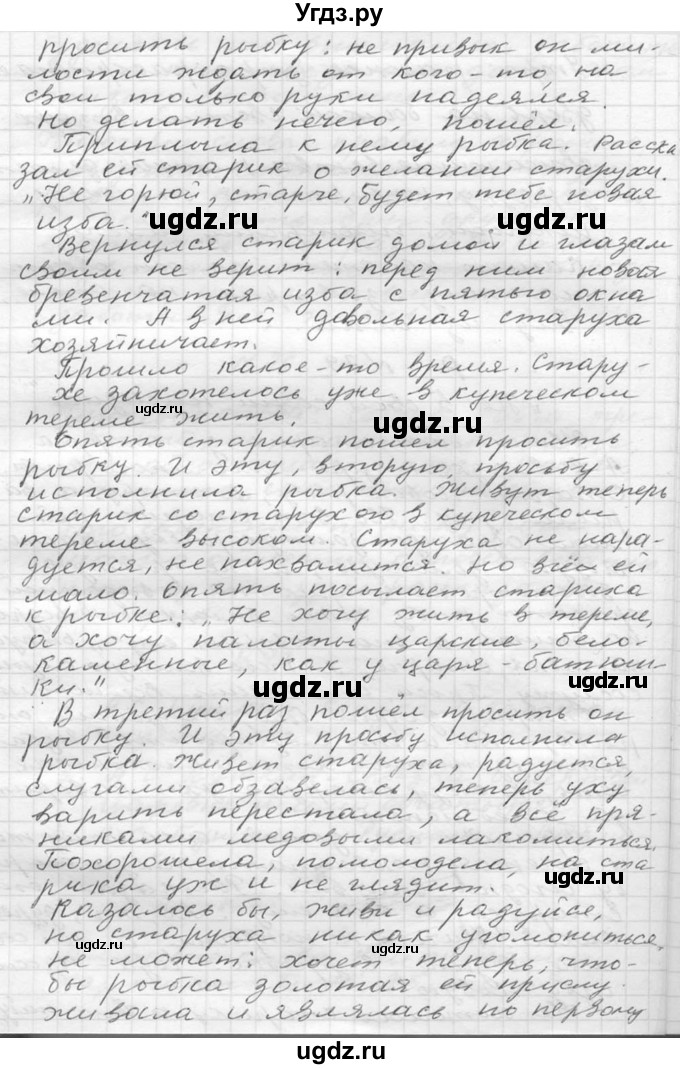 Угдз.ру
просить рыбку: не привык он ми-
лости ждать от кого-то, на
свои только руки надеялся.
Но делать нечего, пошёл.
Приплыла к нему рыбка. Расска
зал ей старик о желании старухи.
„Не горюй, старче, будет тебе новая
изба."
ugdz.ru ugdz.ru
Вернулся старик домой и глазам
своим не верит: перед ним новая
бревенчатая изба с пятью окна
ми. А в ней довольная старуха
хозяйничает.
Прошло какое-то время. Стару-
хе захотелось уже в купеческом
ugdz.ru
тереме жить.
ugdz.ru
Опять старик пошёл просить
рыбку. И эту, вторую, просьбу
исполнила рыбка. Живут теперь
старик со старухого в купеческом
тереме высоком. Старуха не нара-
дуется, не нахвалится. Но всё ей
мало. Опять посылает старика
к рыбке: „Не хочу жить в тереме,
а хочу палаты царские, бело-
каменные, как у царя-батюш-
ки."
ugdz.ru ugdz.ru
В третий раз пошёл просить он
рыбку. И эту просьбу исполнила
рыбка. Живет старуха, радуется,
слугами обзавелась, теперь уху
варить перестала, а всё пря-
никами медовыми лакомиться.
Похорошела, помолодела, на ста
рика уж и не глядит.
ugdz.ru
Казалось бы, живи и радуйся,
но старуха никак угомониться
ugdz.ru ugdz.ru
не может: хочет теперь, что-
бы рыбка золотая ей прислу-
живала и являлась по первому
ugdz.ru